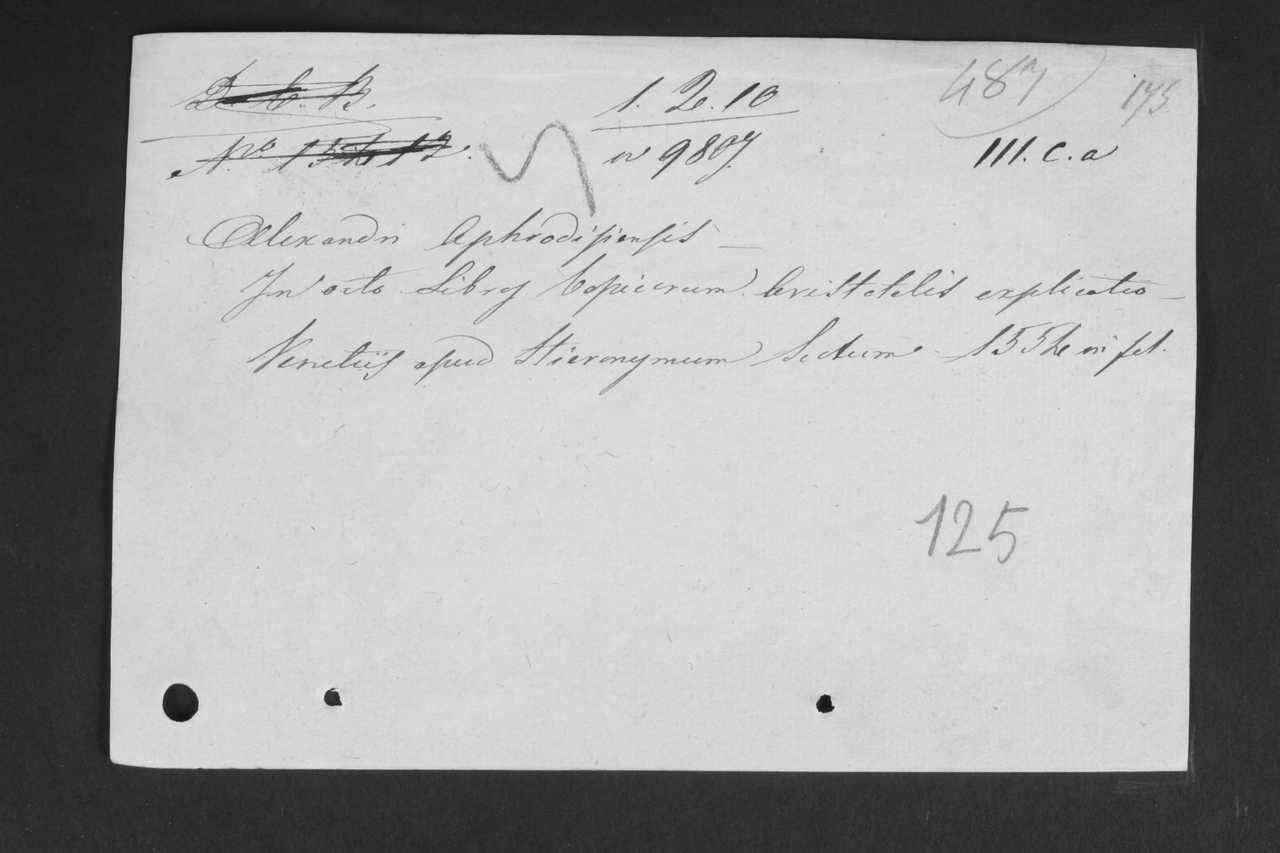 D. C. B.
1. 2. 10
487
173
No 15412.
n 9807.
III. c. a
Alexandri Aphrodisiensis —
In octo Libros Topicorum Aristotelis explicatio —
Venetiis apud Hieronymum Scotum - 1554 in fol.
125